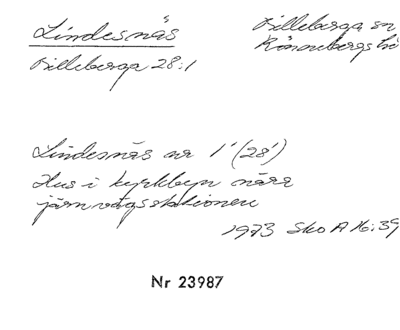 Lindesnäs
Billeberga sn
Rönnebergs hd
Billeberga 28:1
Lindesnäs nr 1' (28')
Hus i kyrkbyn nära
järnvägsstationen
1973 Sko A 16:39
Nr 23987